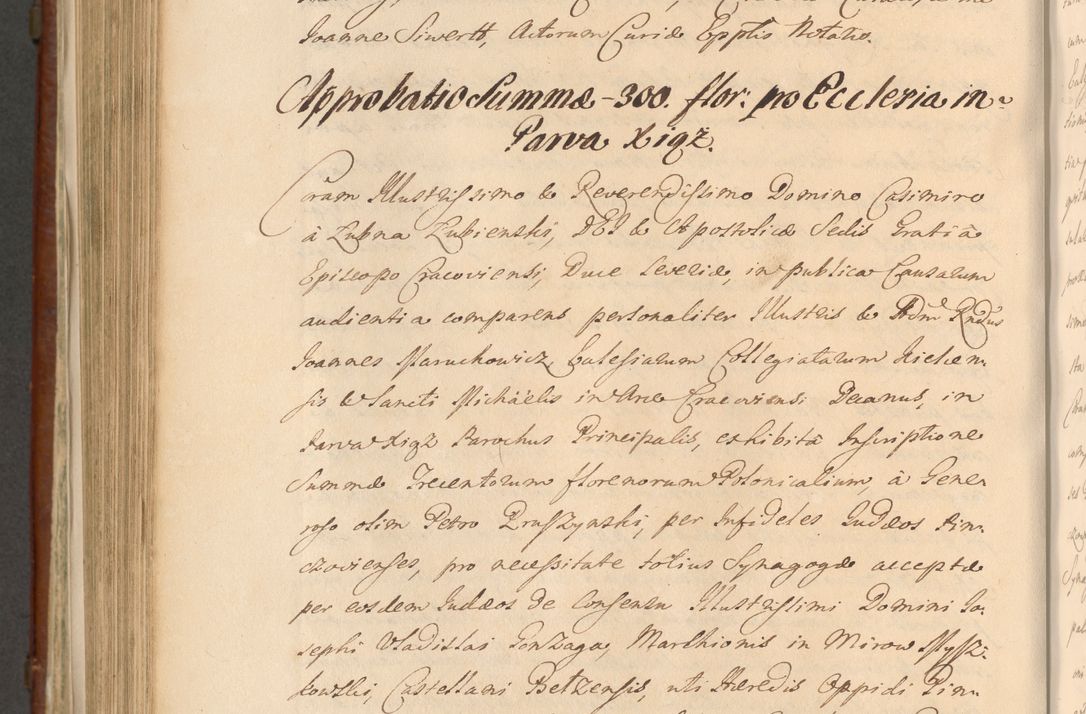 Joanne Siwertt, Actorum Curiæ Epptis Notatio.
Approbatio Summæ - 300. flor: pro Ecclesia in
Parva Xigż.
Coram Illustrissimo & Reverendissimo Domino Casimiro
à Łubna Łubienski, DEI & Apostolicæ Sedis Gratiâ
Episcopo Cracoviensi, Duce Severiæ, in publica Causarum
audientia comparens personaliter Illustris & Adm Rndus
Joannes Maruchowicz, Ecclesiarum Collegiatarum Kielcen-
sis & Sancti Michaelis in Arce Cracoviensi Decanus, in
Parva Xigż Parochus Principalis, exhibitâ Inscriptione
Summæ Trecentorum florenorum Polonicalium, à Gene-
roso olim Petro Pruszynski, per Infideles Judæos Pin-
czovienses, pro necessitate totius Synagogæ acceptæ
per eosdem Judæos de Consensu Illustrissimi Domini Jo-
sephi Vladislai Gonzaga, Marchionis in Mirow Myszs-
kowski, Castellani Betzensis, uti Hæredis Oppidi Pin-